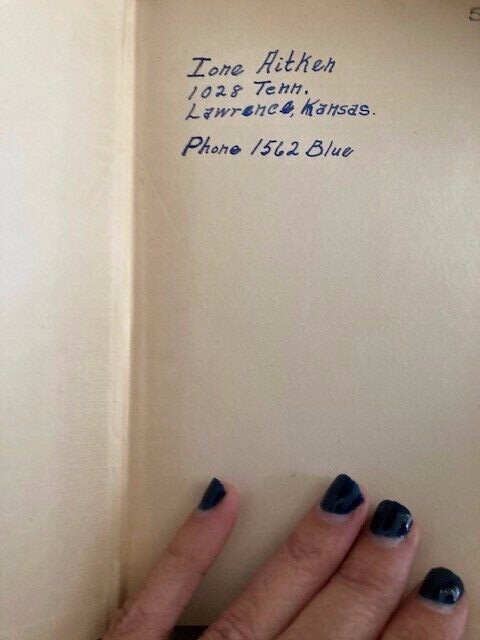 Ione Aitken
1028 Tenn.
Lawrence, Kansas.
Phone 1562 Blue